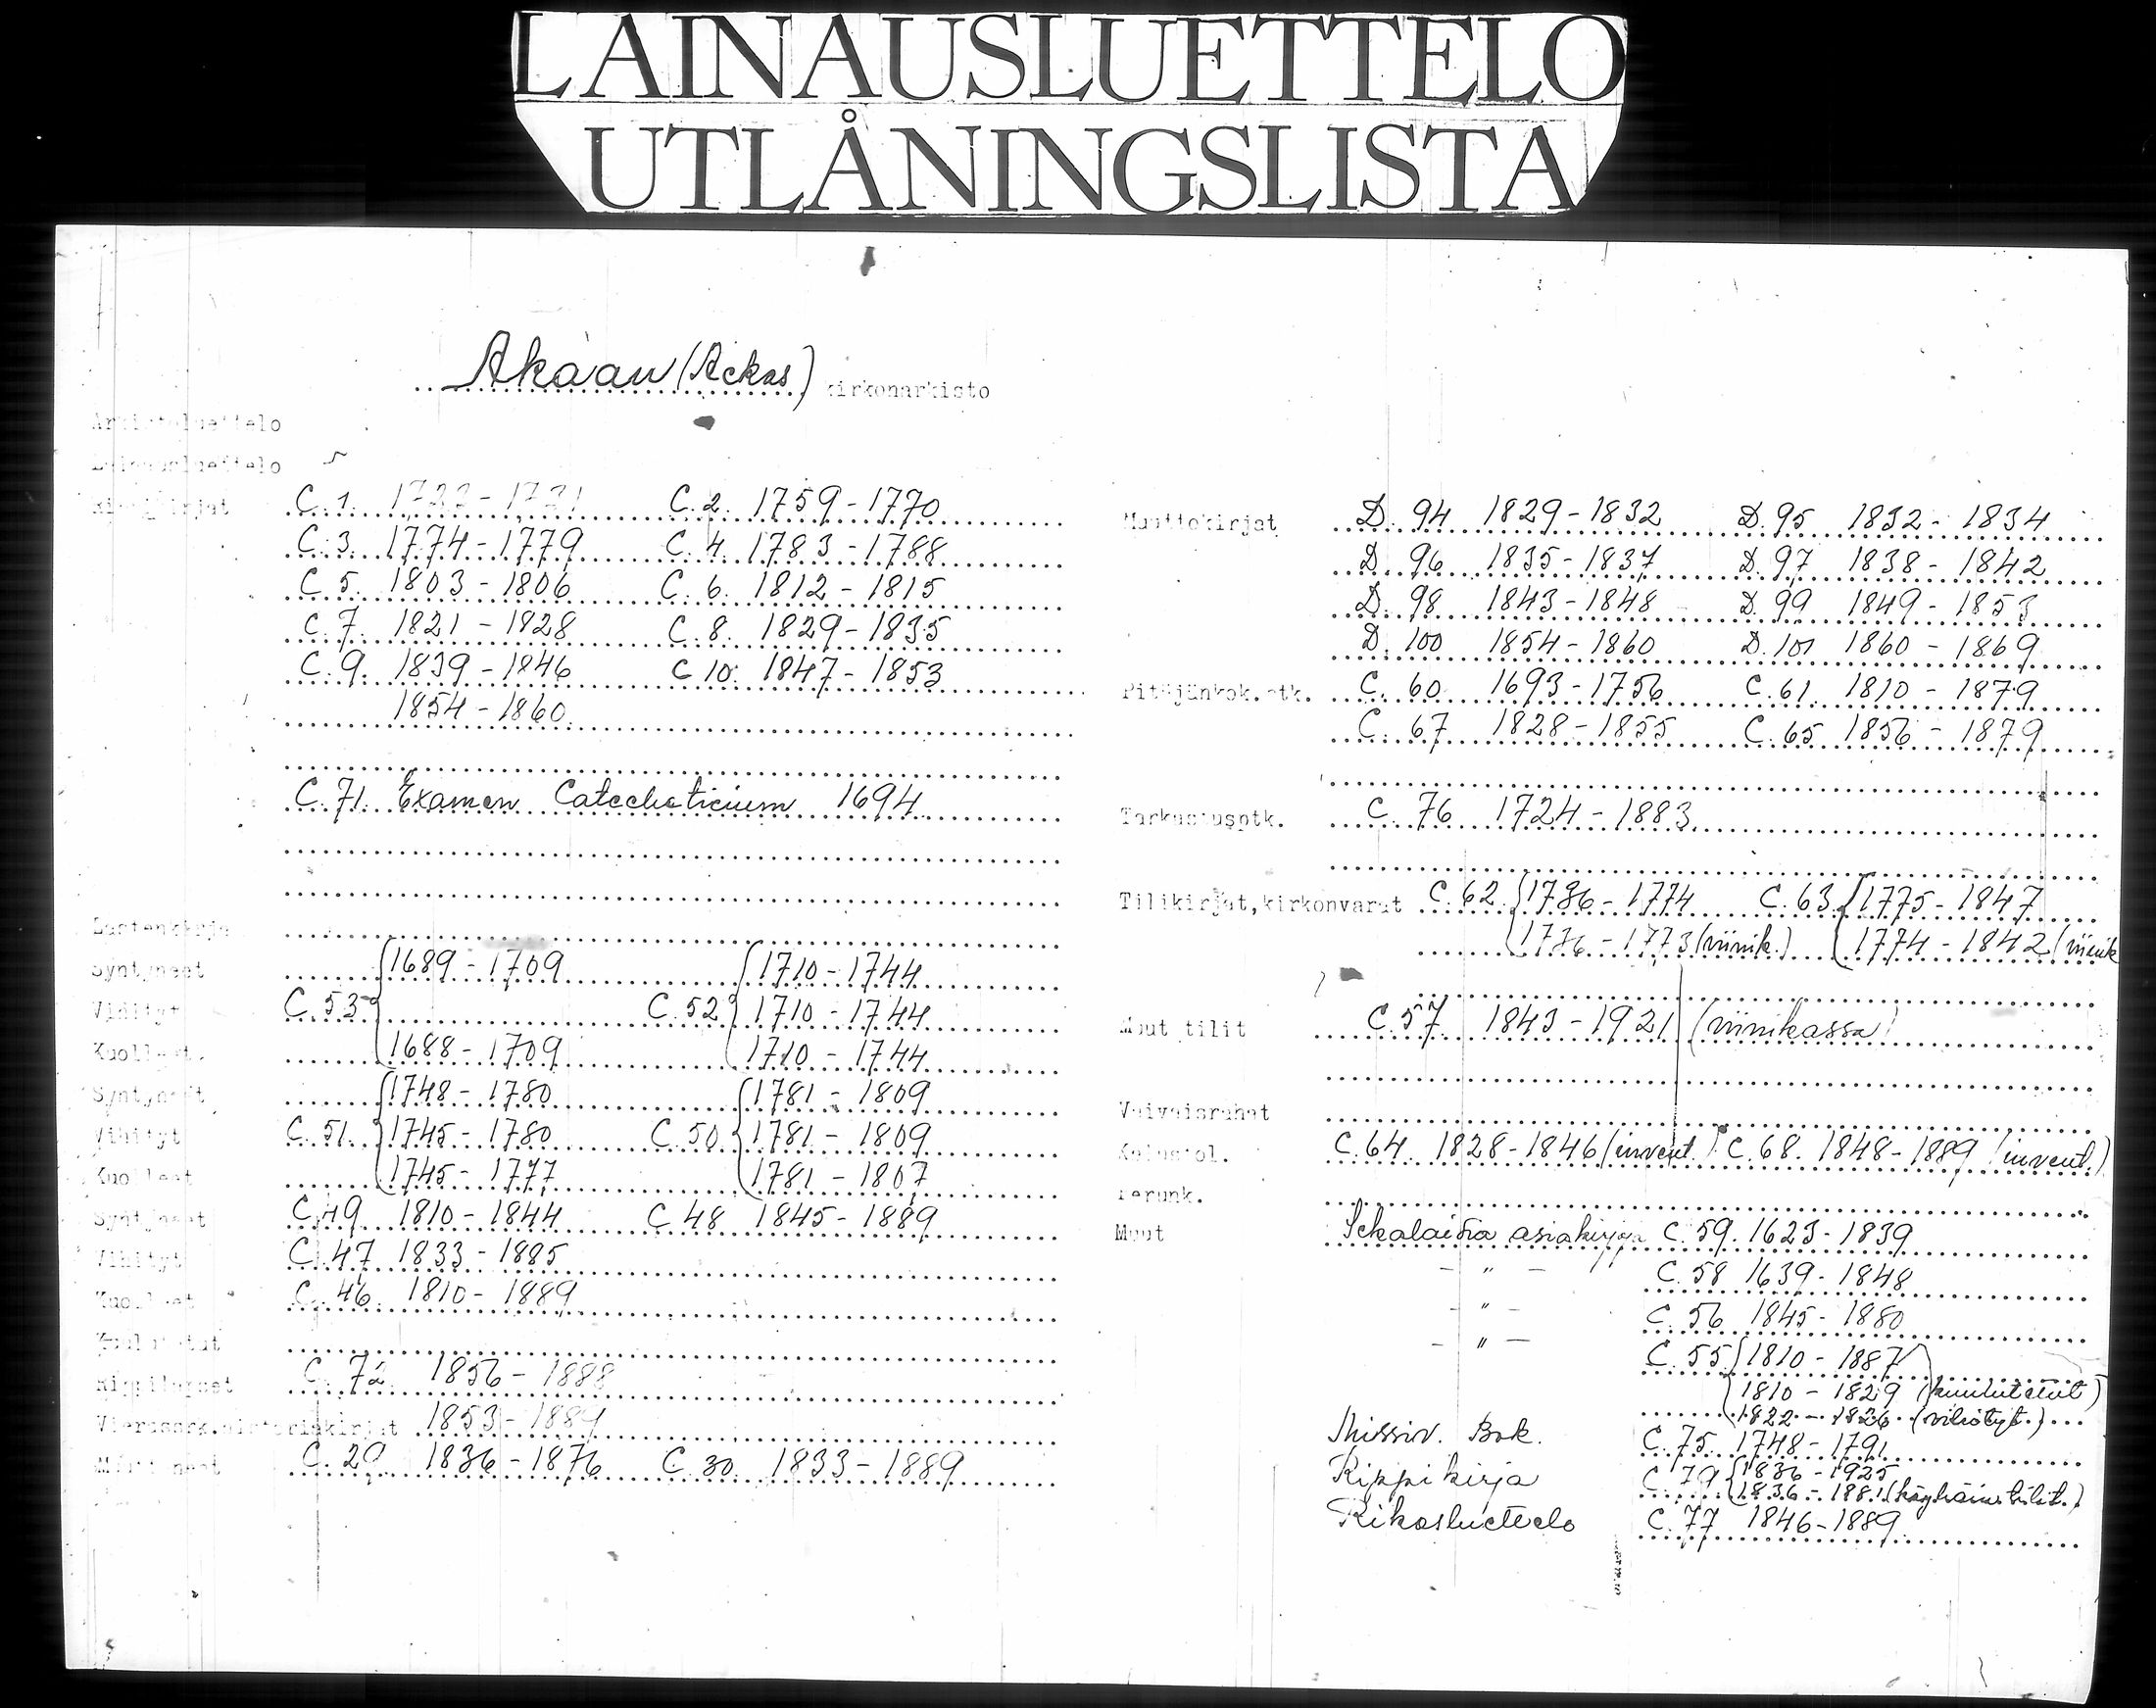 LAINAUSLUETTELO
UTLÅNINGSLISTA
Akaan (Ackas) kirkonarkisto
Arkistoluettelo
C. 1. C. 2. 1759-1770
C. 3. 1774-1779 C. 4. 1783-1788
C. 5. 1803-1806 C. 6. 1812-1815
C. 7. 1821-1828 C. 8. 1829-1835
C. 9. 1839-1846 C 10. 1847-1853
1854-1860
C. 71. Examen Catecheticium 1694
Syntyneet 1689-1709 1710-1744
Vihityt C. 53 C. 52 1710-1744
Kuolleet 1688-1709 1710-1744
Syntyneet 1748-1780 1781-1809
Vihityt C. 51. 1745-1780 C. 50. 1781-1809
Kuolleet 1745-1777 1781-1807
Syntyneet C. 49 1810-1844 C. 48 1845-1889
Vihityt C. 47 1833-1885
Kuolleet C. 46 1810-1889
Kuulutetut
Rippilapset C. 72. 1856-1888
1853-1889
C. 29 1836-1876 C. 30 1833-1889
Muuttokirjat D. 94 1829-1832 D. 95 1832-1834
D. 96 1835-1837 D. 97 1838-1842
D. 98 1843-1848 D. 99 1849-1853
D. 100 1854-1860 D. 101 1860-1869
Pitäjänkok.ptk. C. 60 1693-1756 C. 61. 1810-1879
C. 67 1828-1855 C. 65 1856-1879
Tarkastusptk. C. 76 1724-1883
Tilikirjat, kirkonvarat C. 62. 1736-1774 C. 63. 1775-1847
1776-1773 (viinik.) 1774-1842 (viinik
Muut tilit C. 57 1843-1921 (viinikassa)
Vaivaisrahat
Kalustol. C. 64. 1828-1846 (invent.) C. 68. 1848-1889 (invent.)
Perunk.
Muut Sekalaisia asiakirjoja C. 59. 1623-1839
- " - C. 58 1639-1848
- " - C. 56 1845-1880
- " - C. 55 1810-1887
1810-1829 (kuulutetut)
1822-1826 (vihityt.)
Missiv. Bok. C. 75. 1748-1791
Rippikirja C. 79 1836-1925
1836-1881
Rikosluettelo C. 77 1846-1889